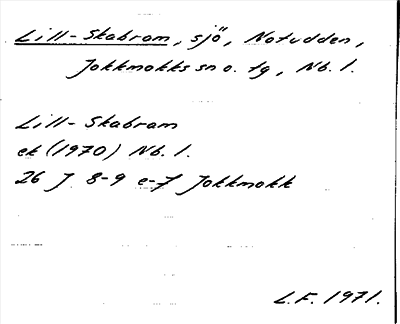 Lill-Skabram, sjö, Notudden,
Jokkmokks sn o. tg, Nb. l.
Lill-Skabram
ek (1970) Nb. l.
26 J 8-9 e-f Jokkmokk
L.F. 1971.